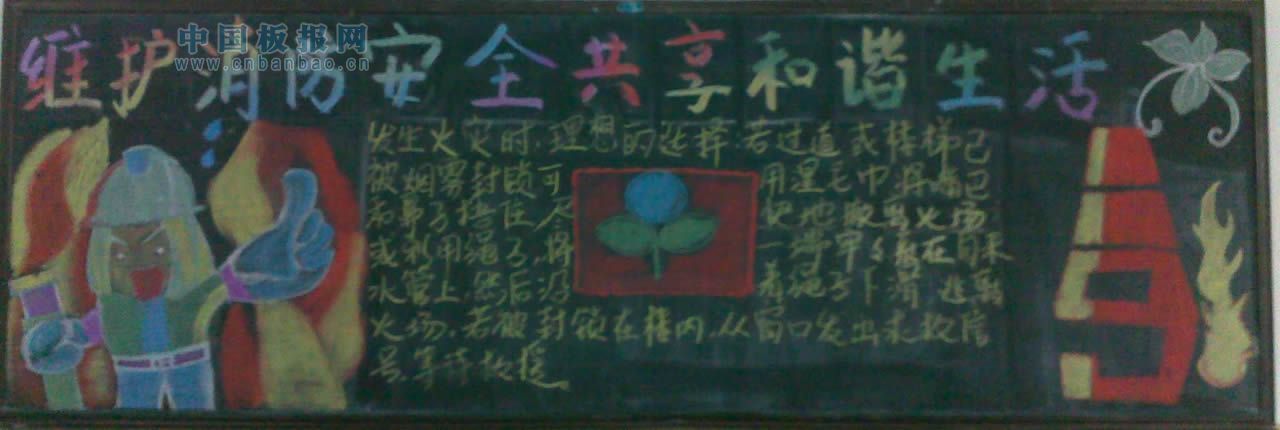 维护消防安全共享和谐生活
中国板报网
www.cnbanbao.cn
发生火灾时,理想的选择.若过道或楼梯已
被烟雾封锁可用湿毛巾将嘴巴
和鼻子捂住,尽快地撤出火场
或利用绳子,将一端牢牢系在自来
水管上,然后沿着绳子下滑逃离
火场.若被封锁在楼内,从窗口发出求救信
号,等待救援.